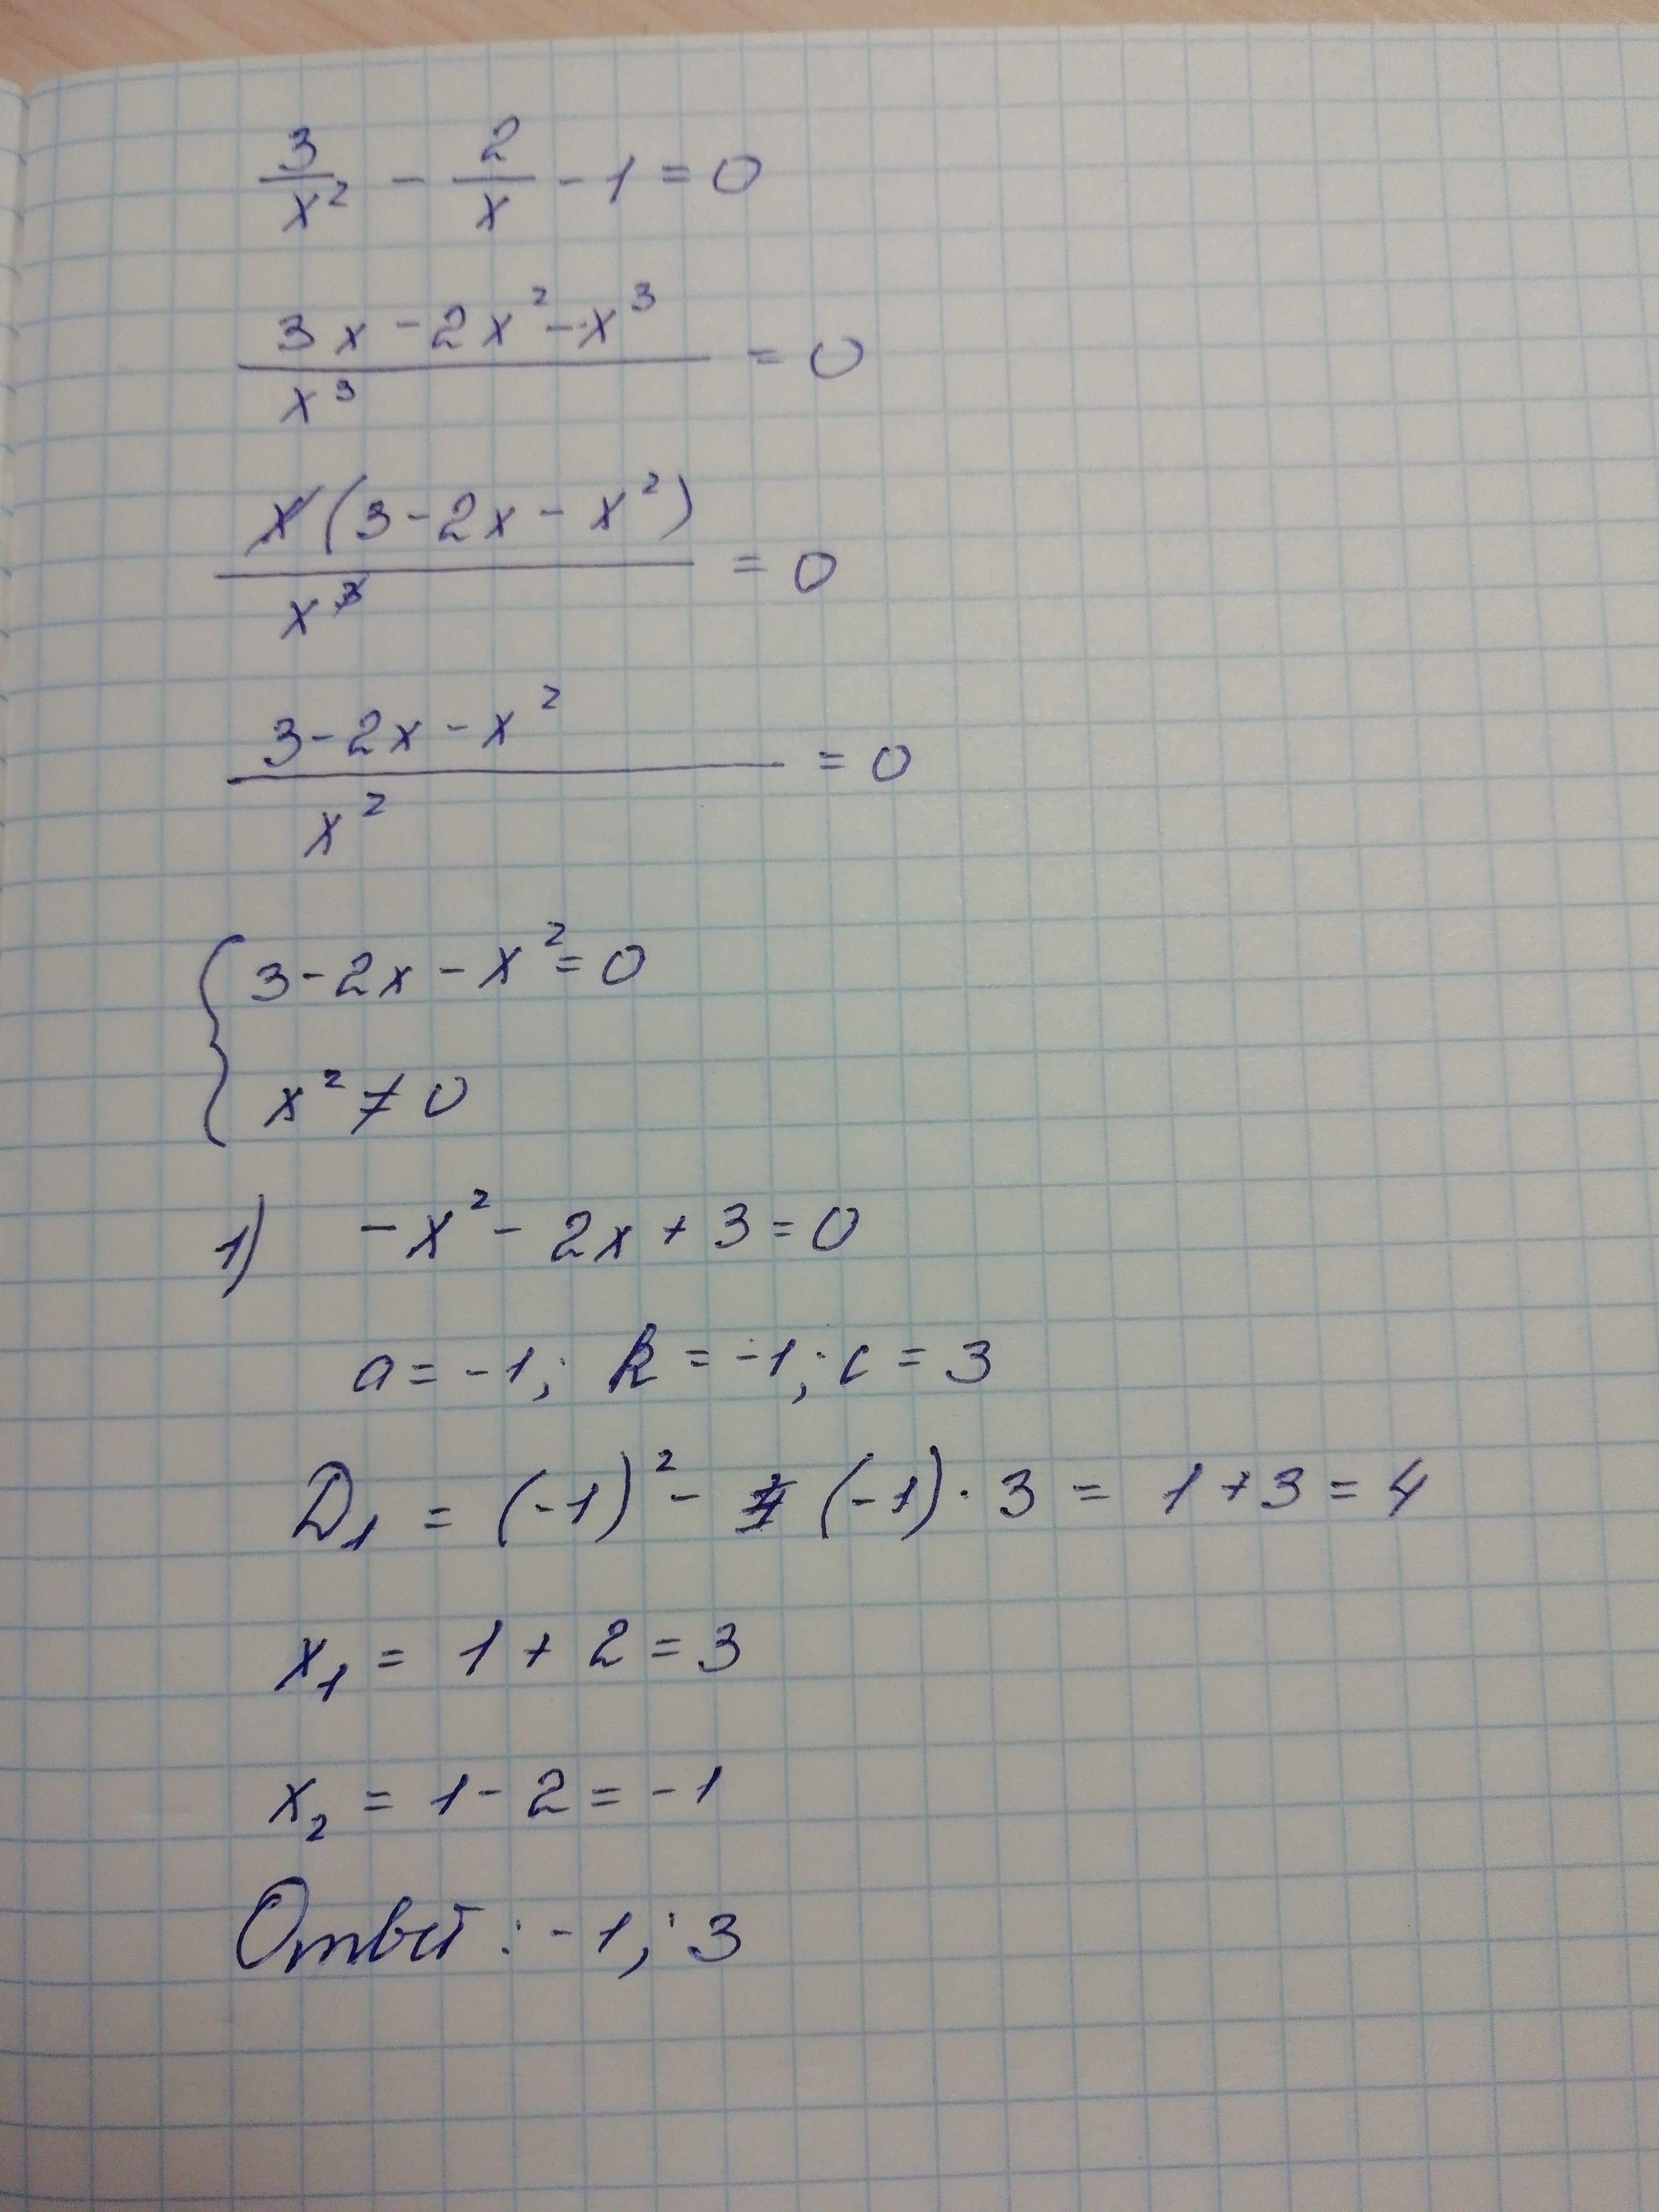 3/x² - 2/x - 1 = 0
(3x - 2x² - x³)/x³ = 0
x(3 - 2x - x²)/x³ = 0
(3 - 2x - x²)/x² = 0
{ 3 - 2x - x² = 0
x² ≠ 0
1) -x² - 2x + 3 = 0
a = -1; k = -1; c = 3
D₁ = (-1)² - (-1) · 3 = 1 + 3 = 4
x₁ = 1 + 2 = 3
x₂ = 1 - 2 = -1
Ответ: -1; 3